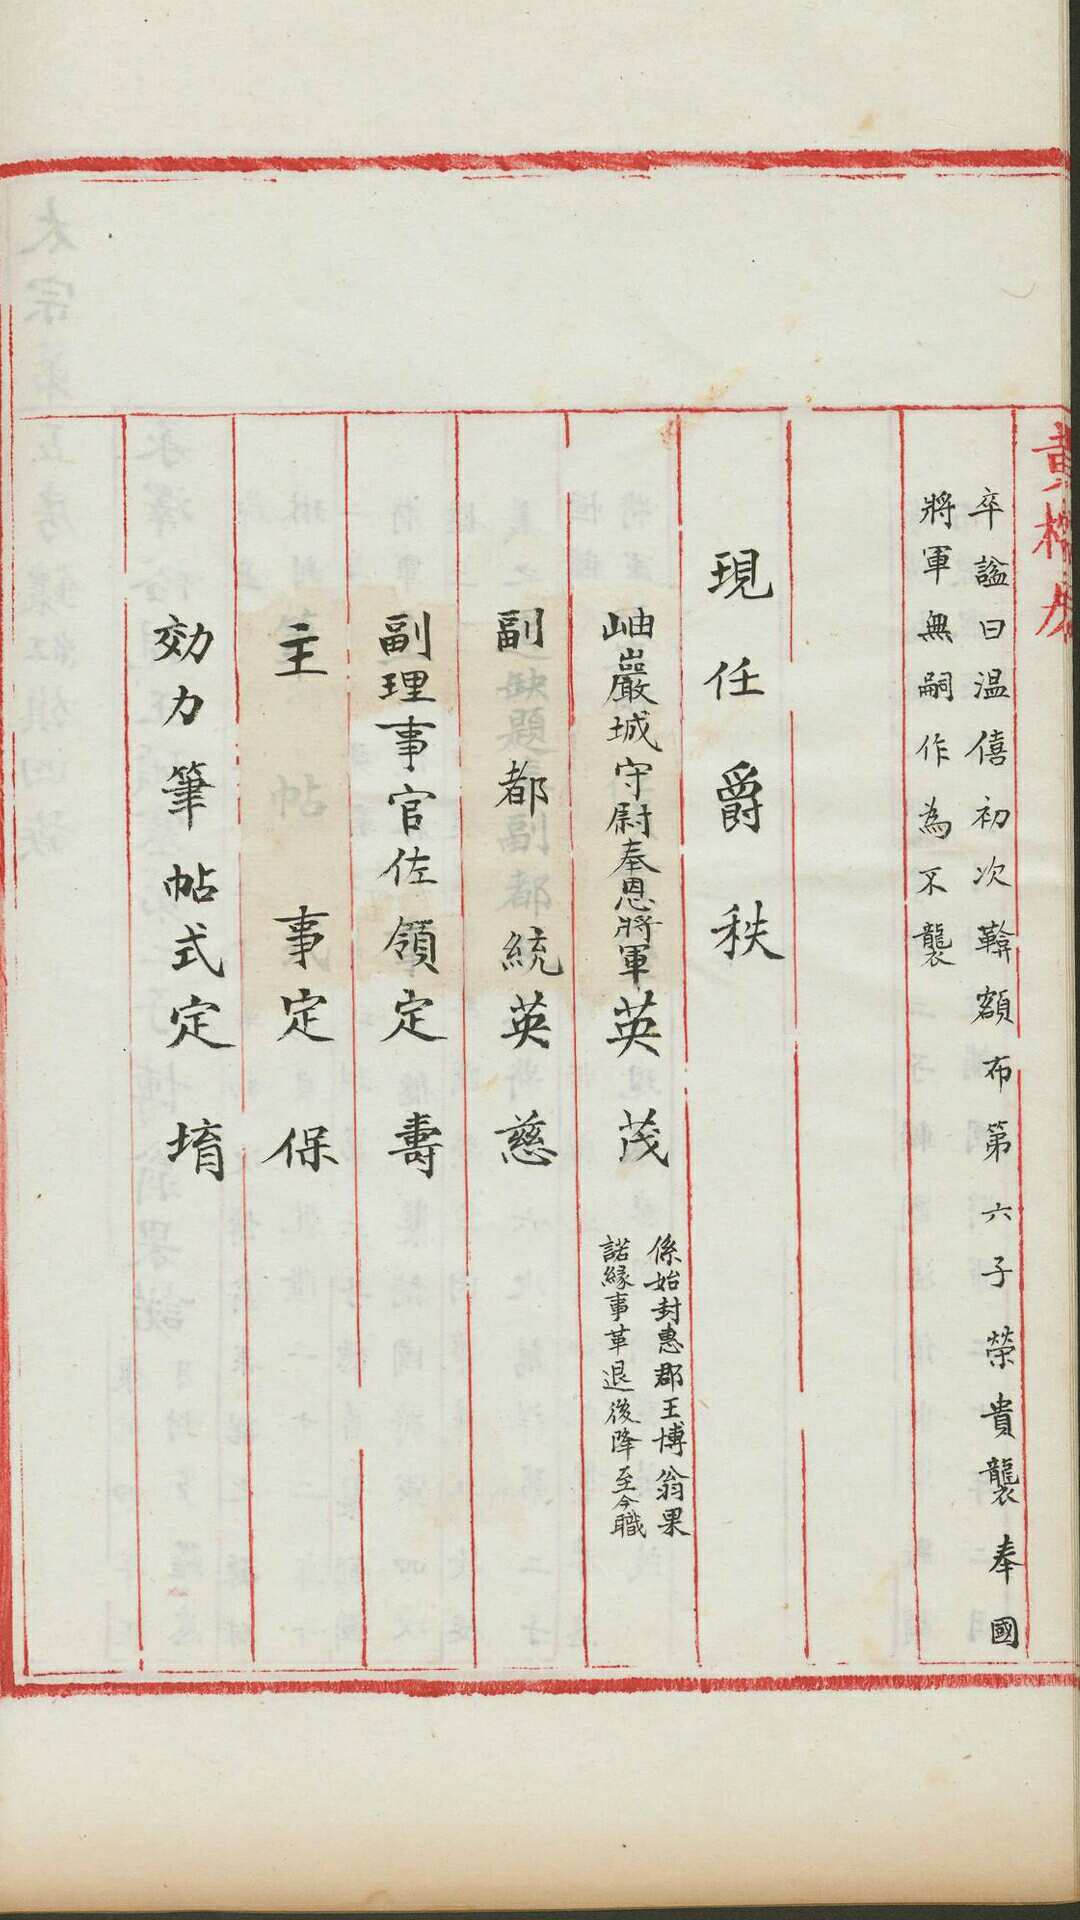 卒諡曰温僖初次鞥額布第六子榮貴襲奉國
將軍無嗣作為不襲
現任爵秩
岫巖城守尉奉恩將軍英茂
係始封惠郡王博翁果
諾緣事革退後降至今職
副都統英慈
副理事官佐領定壽
主事定保
効力筆帖式定堉